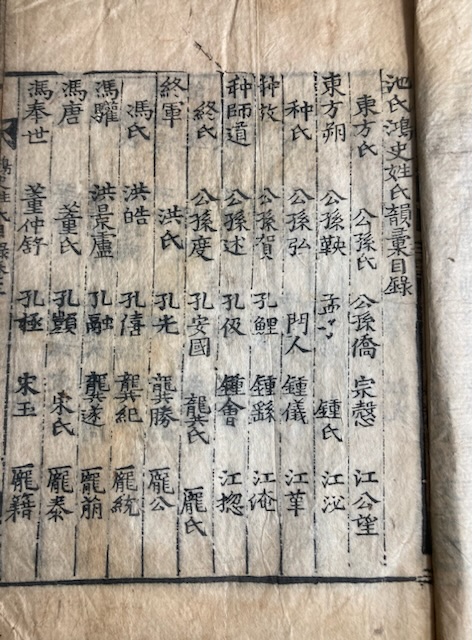 池氏鴻史姓氏韻彙目錄
東方氏 公孫氏 公孫僑 宗慤 江公望
東方朔 公孫鞅 鍾氏 江泌
种氏 公孫弘 門人 鍾儀 江革
种放 公孫賀 孔鯉 鍾繇 江淹
种師道 公孫述 孔伋 鍾會 江揔
終氏 公孫度 孔安國 龔氏 龐氏
終軍 洪氏 孔光 龔勝 龐公
馮氏 洪皓 孔僖 龔紀 龐統
馮驩 洪景盧 孔融 龔遂 龐萌
馮唐 董氏 孔顗 宋氏 龐泰
馮奉世 董仲舒 孔極 宋玉 龐籍
鴻史姓氏目錄